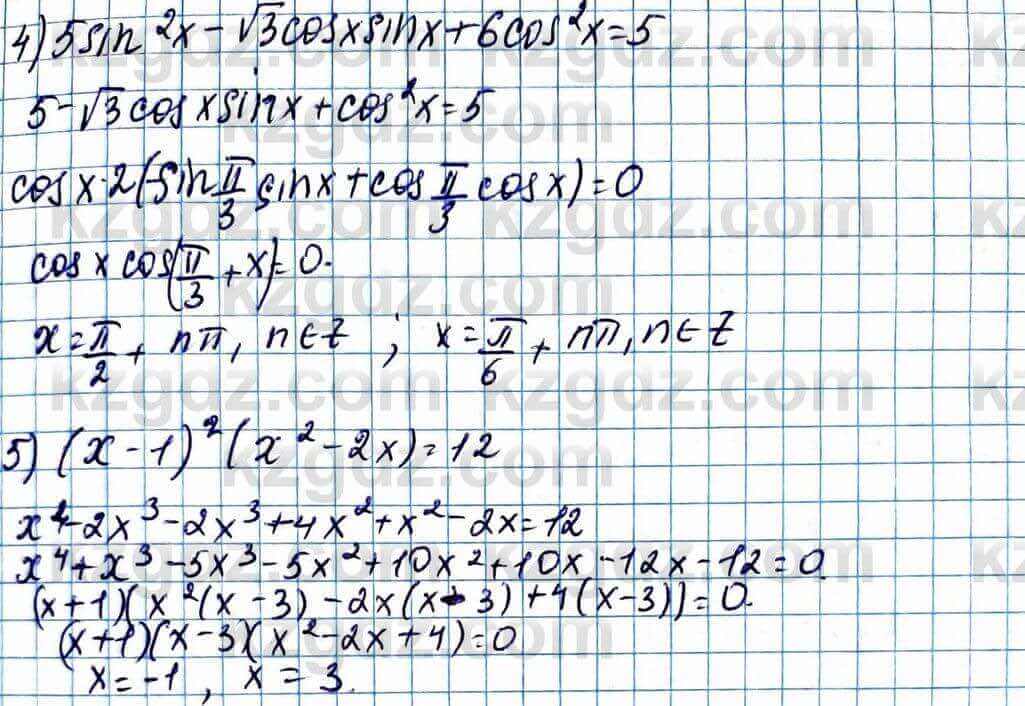 4) 5sin²x - √3cosxsinx + 6cos²x = 5
5 - √3cosxsinx + cos²x = 5
cosx·2(-sin π/3 sinx + cos π/3 cosx) = 0
cosx cos(π/3 + x) = 0.
x = π/2 + nπ, n∈Z ; x = π/6 + nπ, n∈Z
5) (x-1)²(x²-2x) = 12
x⁴-2x³-2x³+4x²+x²-2x=12
x⁴+x³-5x³-5x²+10x²+10x-12x-12=0.
(x+1)(x²(x-3)-2x(x-3)+4(x-3))=0.
(x+1)(x-3)(x²-2x+4)=0
x=-1, x=3.
kzgdz.com